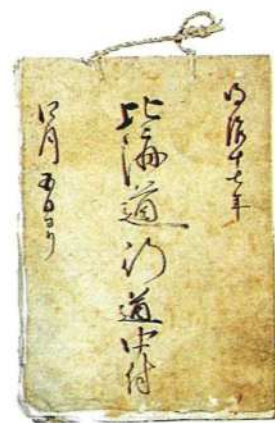 明治十七年
北海道行道中付
四月五日より